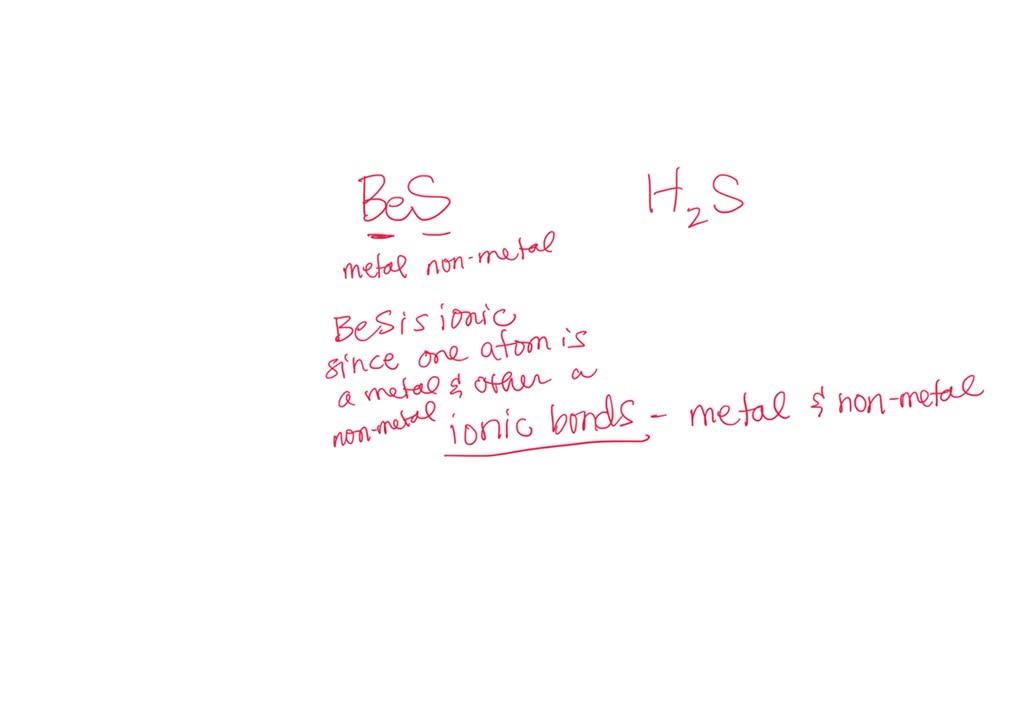 BeS H₂S
metal non-metal
BeS is ionic
since one atom is
a metal & other a
non-metal
ionic bonds - metal & non-metal